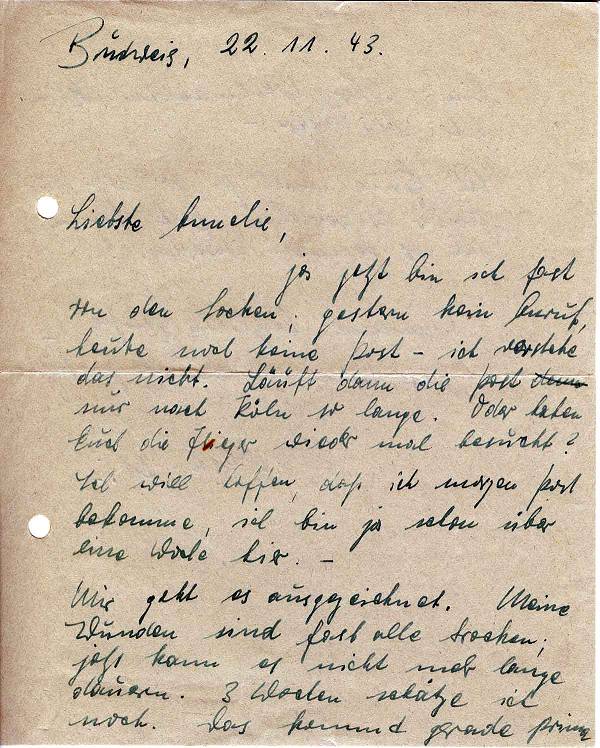 Budweis, 22. 11. 43.
Liebste Annelie,
jas jetzt bin ich fast
von den Socken; gestern kein Anruf,
heute noch keine Post – ich verstehe
das nicht. Läuft dann die Post denn
nur nach Köln so lange. Oder haben
Euch die Flieger wieder mal besucht?
Ich will hoffen, daß ich morgen Post
bekomme, ich bin ja schon über
eine Woche hier. –
Mir geht es ausgezeichnet. Meine
Wunden sind fast alle trocken;
jetzt kann es nicht mehr lange
dauern. 3 Wochen schätze ich
noch. Das kommt grade prima